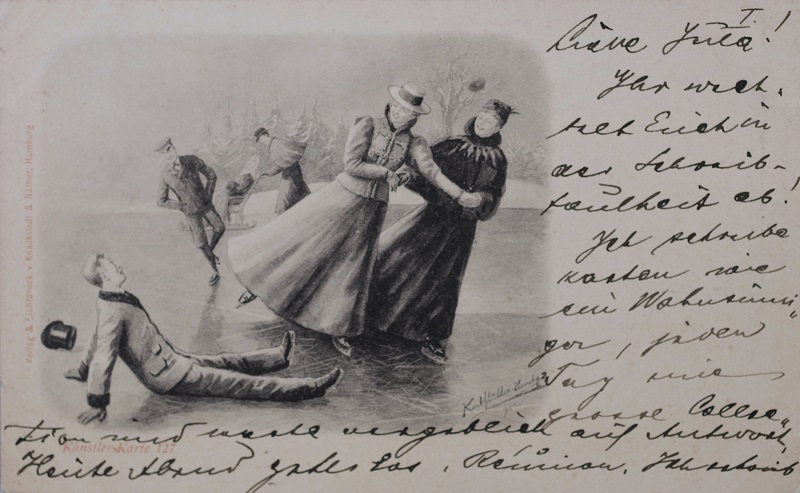 I.
Liebe Jula!
Ihr wech-
selt Euch in
der Schreib-
faulheit ab!
Ich schreibe
Karten wie
ein Wahnsinni-
ger, jeden
Tag eine
grosse Collec-
tion und warte vergeblich auf Antwort,
Heute Abend geht es los, Réunion, Ich schreib
Künstler-Karte 127
Verlag & Lichtdruck v. Knackstedt & Näther, Hamburg